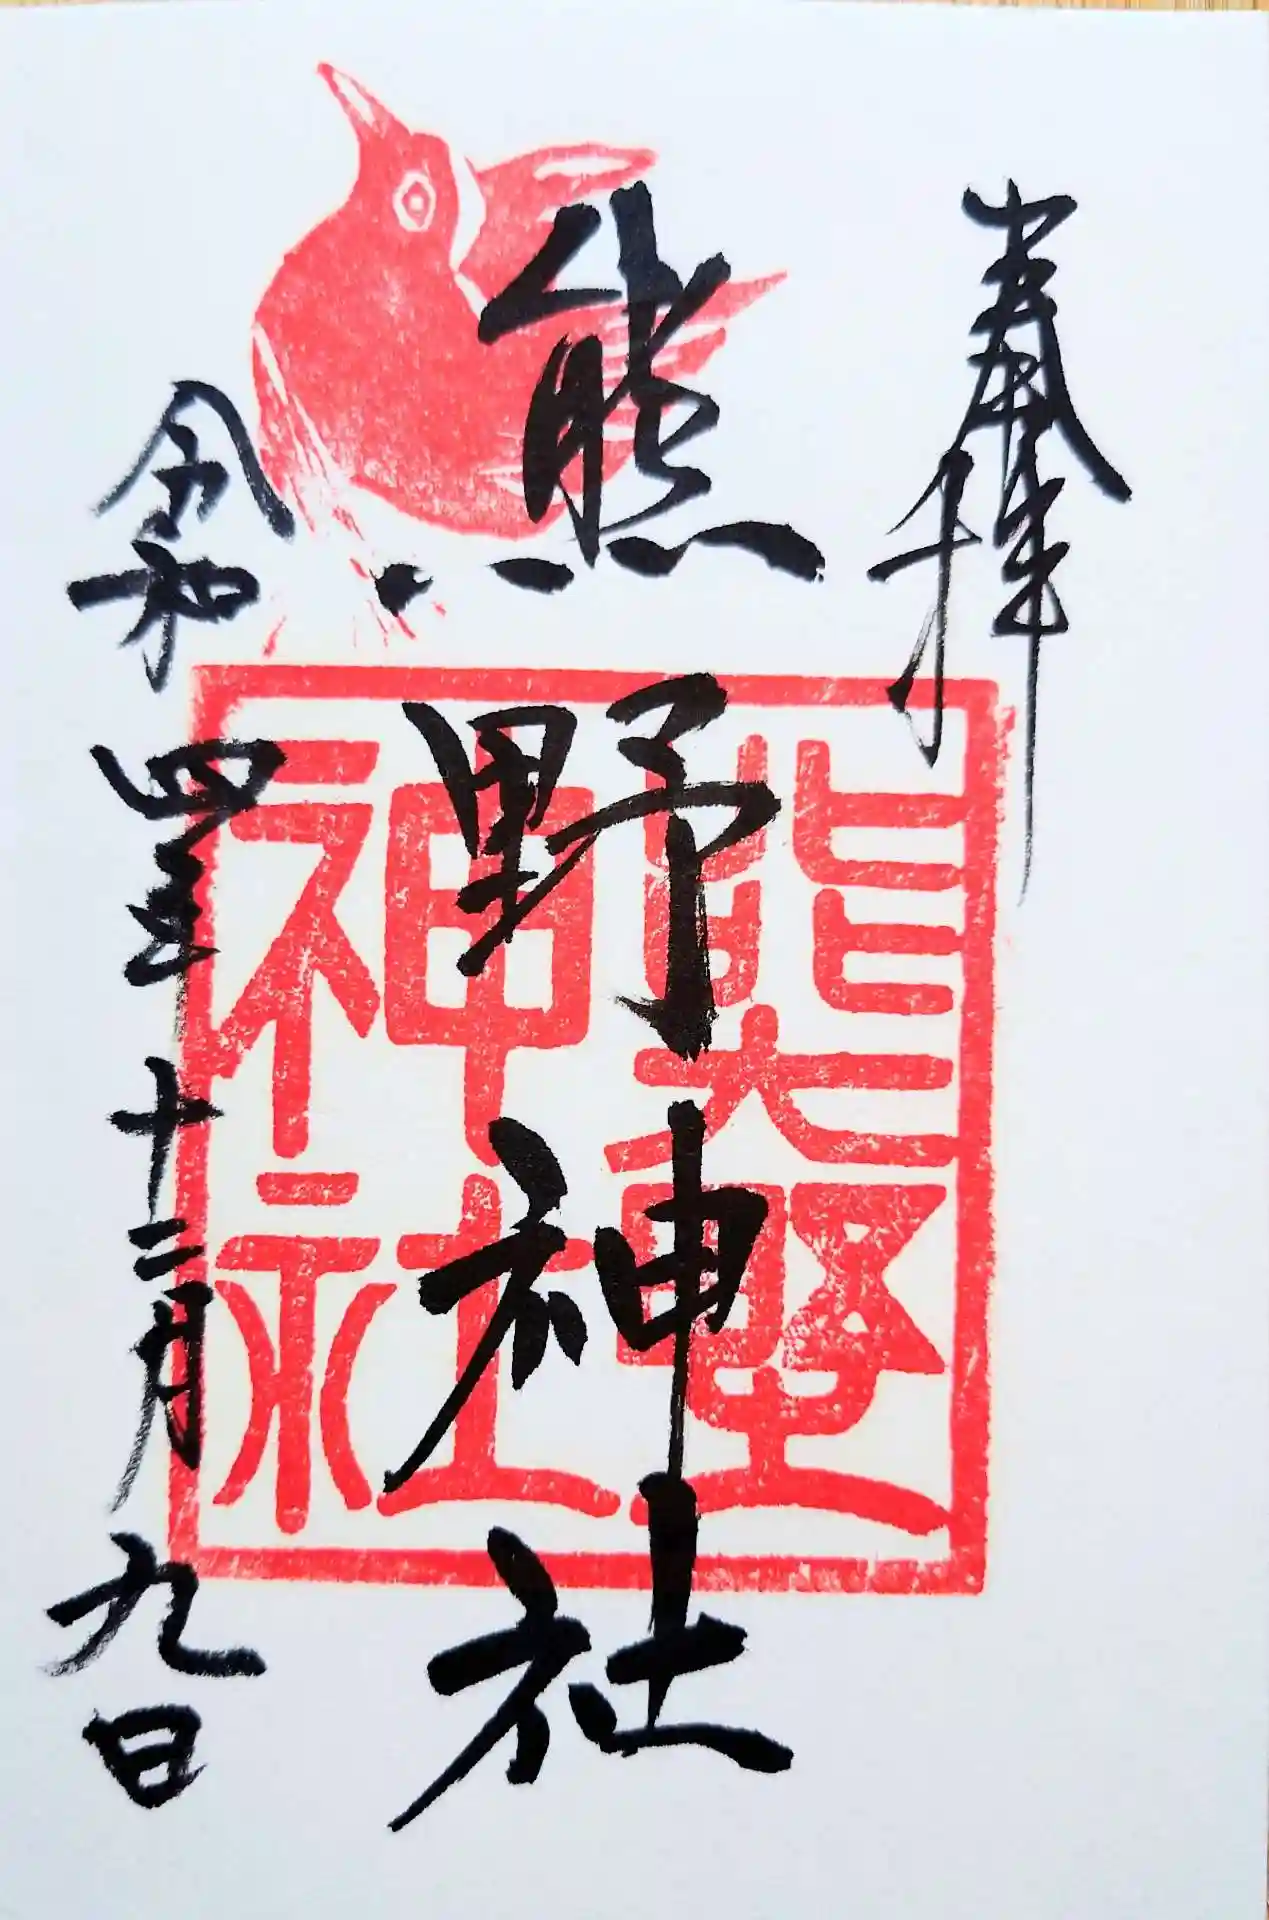 奉拝
熊野神社
熊野神社
令和四年十二月九日